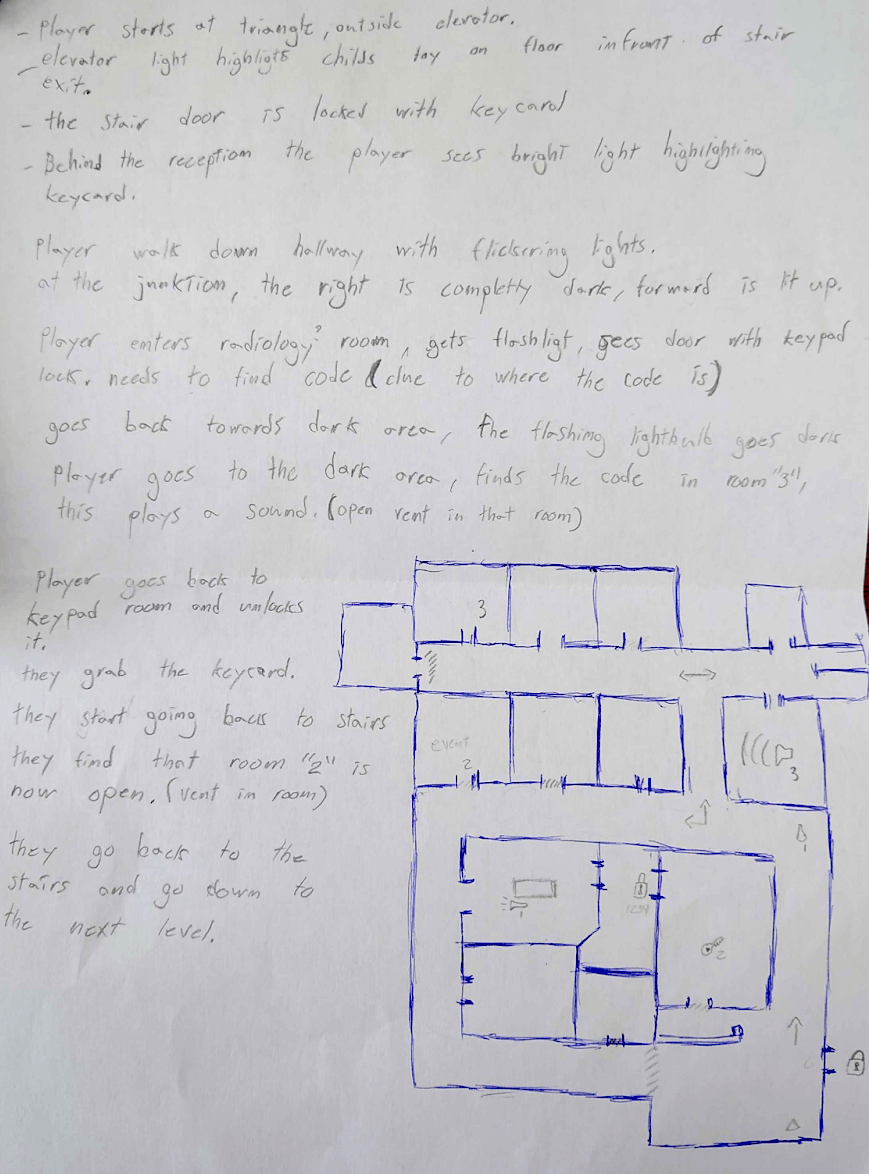 - Player starts at triangle, outside elevator.
- elevator light highligts childs toy on floor infront of stair
exit.
- the stair door is locked with keycard
- Behind the reception the player sees bright light highlighting
keycard.
Player walk down hallway with flickering lights.
at the junktion, the right is completly dark, forward is lit up.
Player enters radiology? room, gets flashligt, sees door with keypad
lock. needs to find code (clue to where the code is)
goes back towards dark area, the flashing lightbulb goes dark
Player goes to the dark area, finds the code in room "3",
this plays a sound. (open vent in that room)
Player goes back to
keypad room and unlocks
it.
they grab the keycard.
they start going back to stairs
they find that room "2" is
now open. (vent in room)
they go back to the
stairs and go down to
the next level.
3
event
2
3
1
1234
2